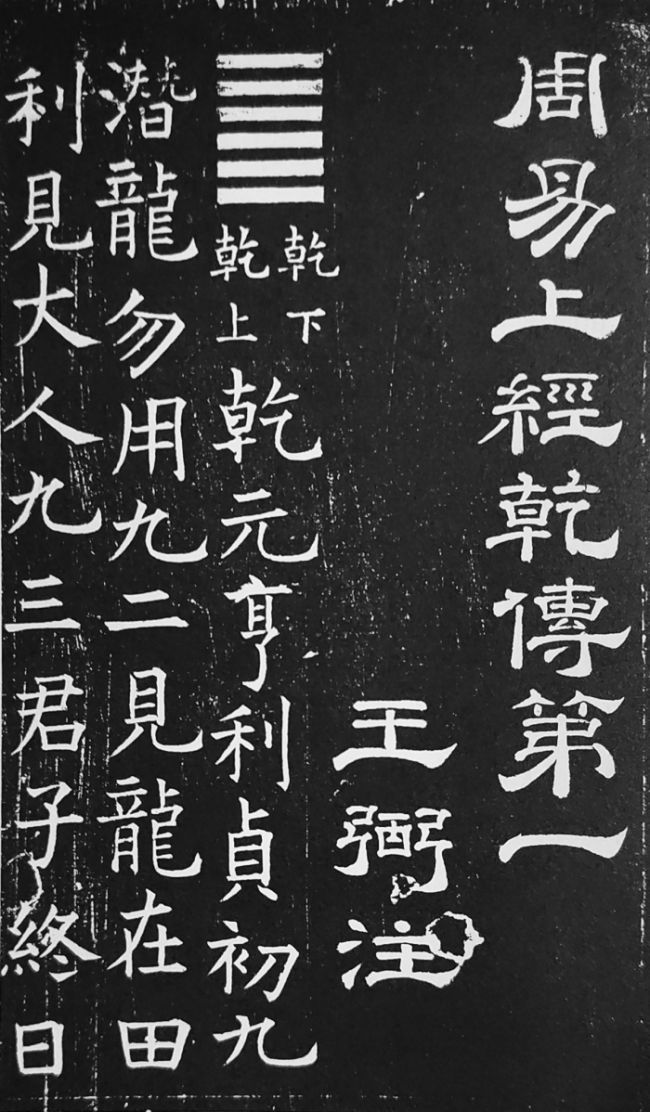 周易上經乾傳第一
王弼注
乾下
乾上
乾元亨利貞初九
潛龍勿用九二見龍在田
利見大人九三君子終日